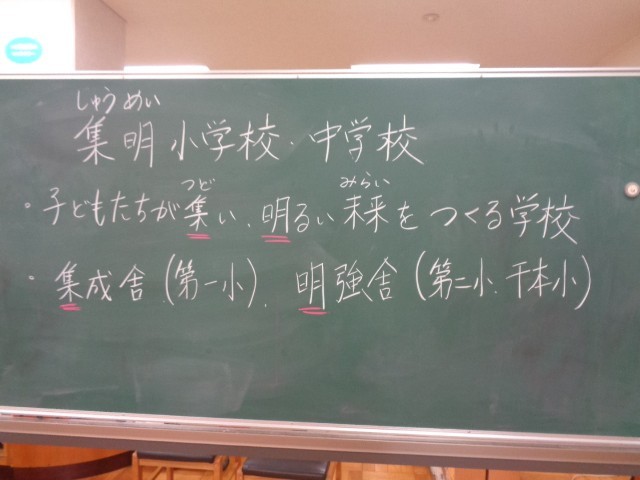 しゅうめい
集明小学校・中学校
つど みらい
・子どもたちが集い、明るい未来をつくる学校
・集成舎(第一小)、明強舎(第二小、千本小)